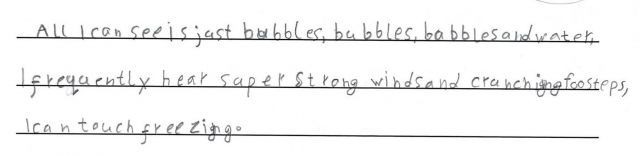 All I can see is just bubbles, bubbles, bubbles and water,
I frequently hear super strong winds and crunching foosteps,
I can touch freezigng.